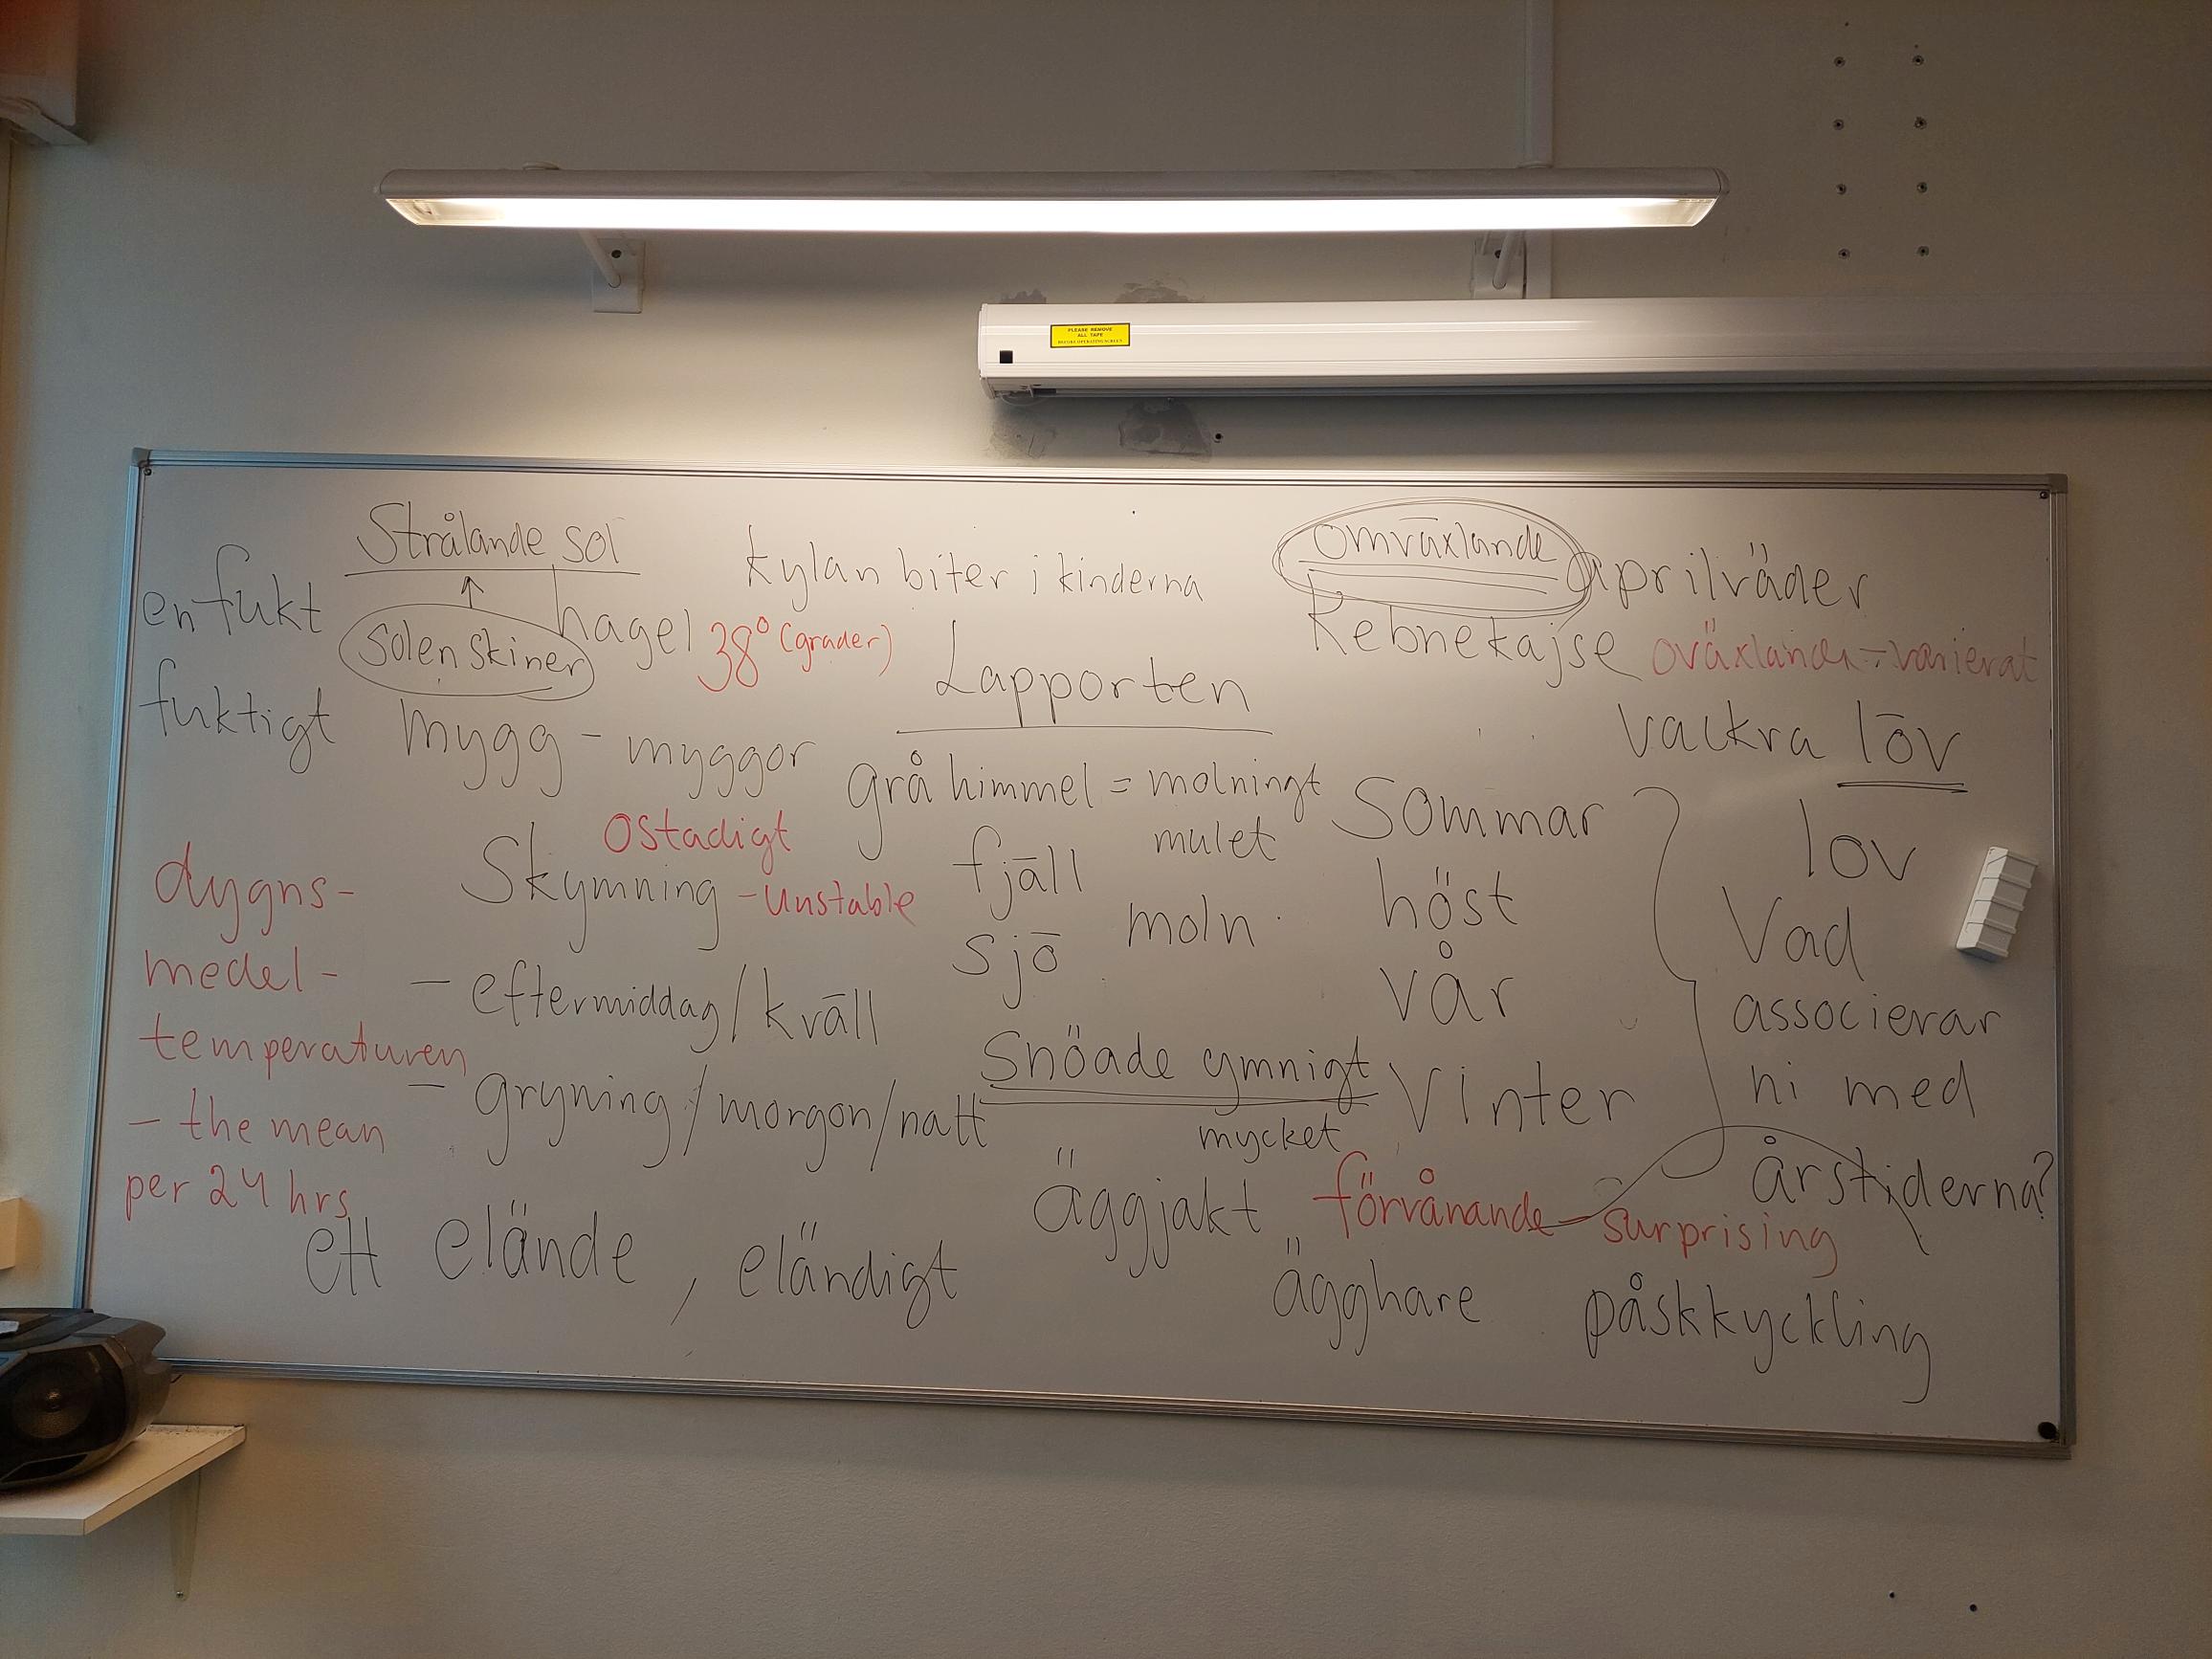 PLEASE REMOVE
ALL TAPE
BEFORE OPERATING SCREEN
Strålande sol
en fukt
solen skiner
hagel
38° (grader)
kylan biter i kinderna
omväxlande
aprilväder
Kebnekajse
oväxlande - varierat
fuktigt
mygg - myggor
Lapporten
vackra löv
lov
grå himmel = molningt
mulet
ostadigt
- unstable
Skymning
- eftermiddag/kväll
- gryning/morgon/natt
fjäll
sjö
moln
Sommar
höst
vår
Vinter
Vad
associerar
ni med
årstiderna?
dygns-
medel-
temperaturen
- the mean
per 24 hrs
Snöade ymnigt
mycket
ett elände, eländigt
äggjakt
förvånande - surprising
ägghare
påskkyckling